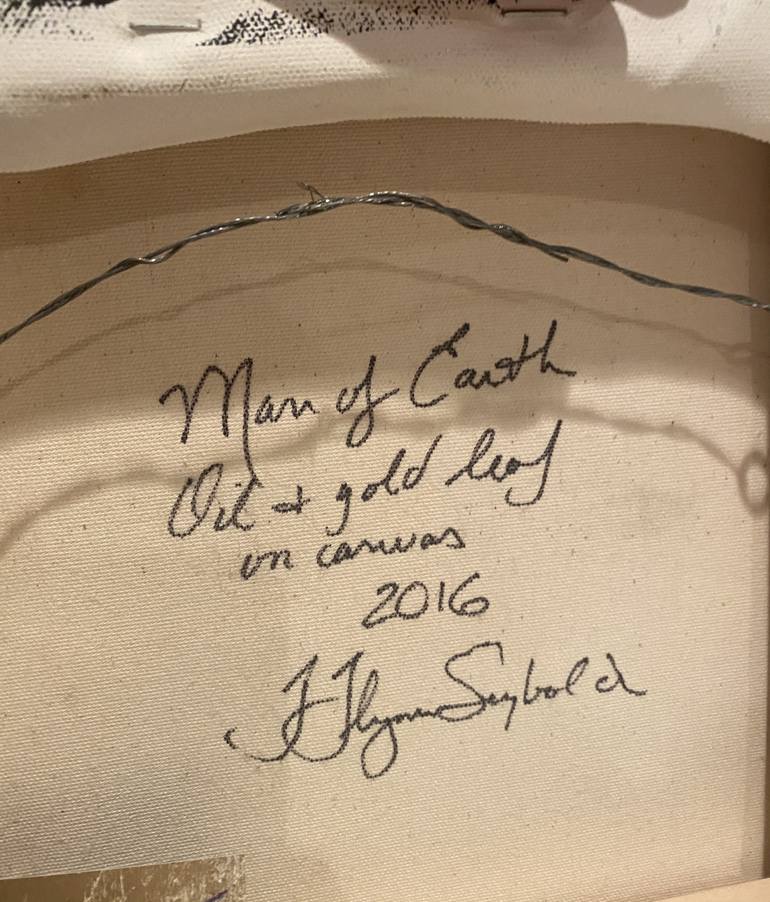 Man of Earth
Oil + gold leaf
on canvas
2016
Flynn Seybold